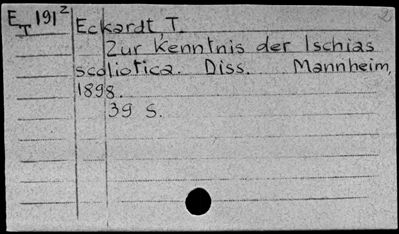 E_T 191²
Eckardt T.
Zur Kenntnis der Ischias
scoliotica. Diss. Mannheim,
1898.
39 S.